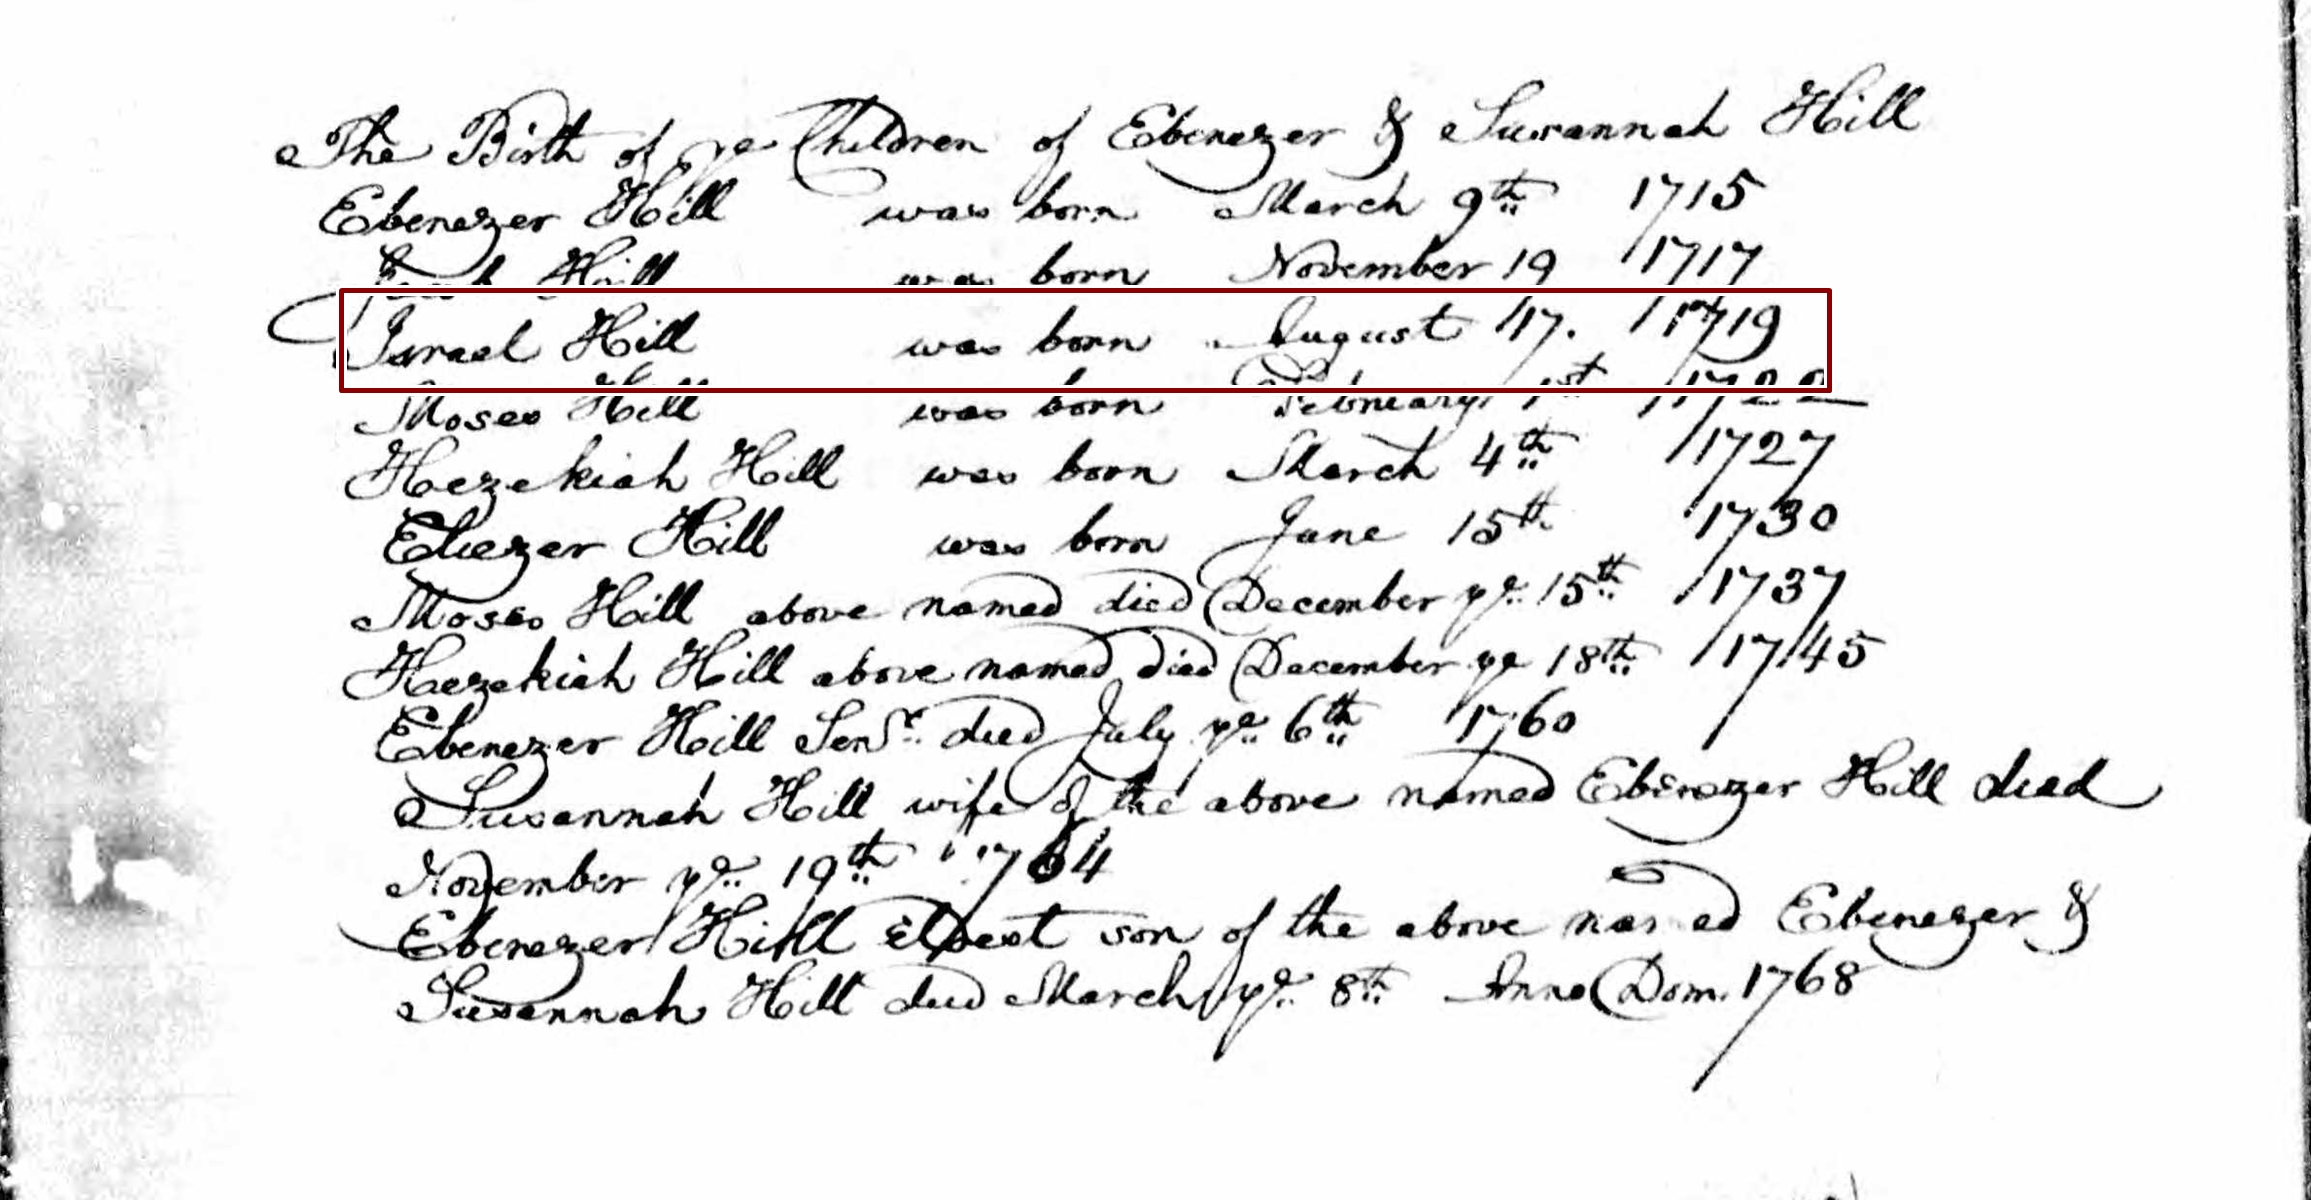 The Birth of ye Children of Ebenezer & Susannah Hill
Ebenezer Hill was born March 9th 1715
Hill was born November 19 1717
Israel Hill was born August 17. 1719
Moses Hill was born February 1st 1722
Hezekiah Hill was born March 4th 1727
Eliezer Hill was born June 15th 1730
Moses Hill above named died December ye 15th 1737
Hezekiah Hill above named died December ye 18th 1745
Ebenezer Hill Senr. died July ye 6th 1760
Susannah Hill wife of the above named Ebenezer Hill died
November ye 19th 1764
Ebenezer Hill eldest son of the above named Ebenezer &
Susannah Hill died March ye 8th Anno Dom. 1768